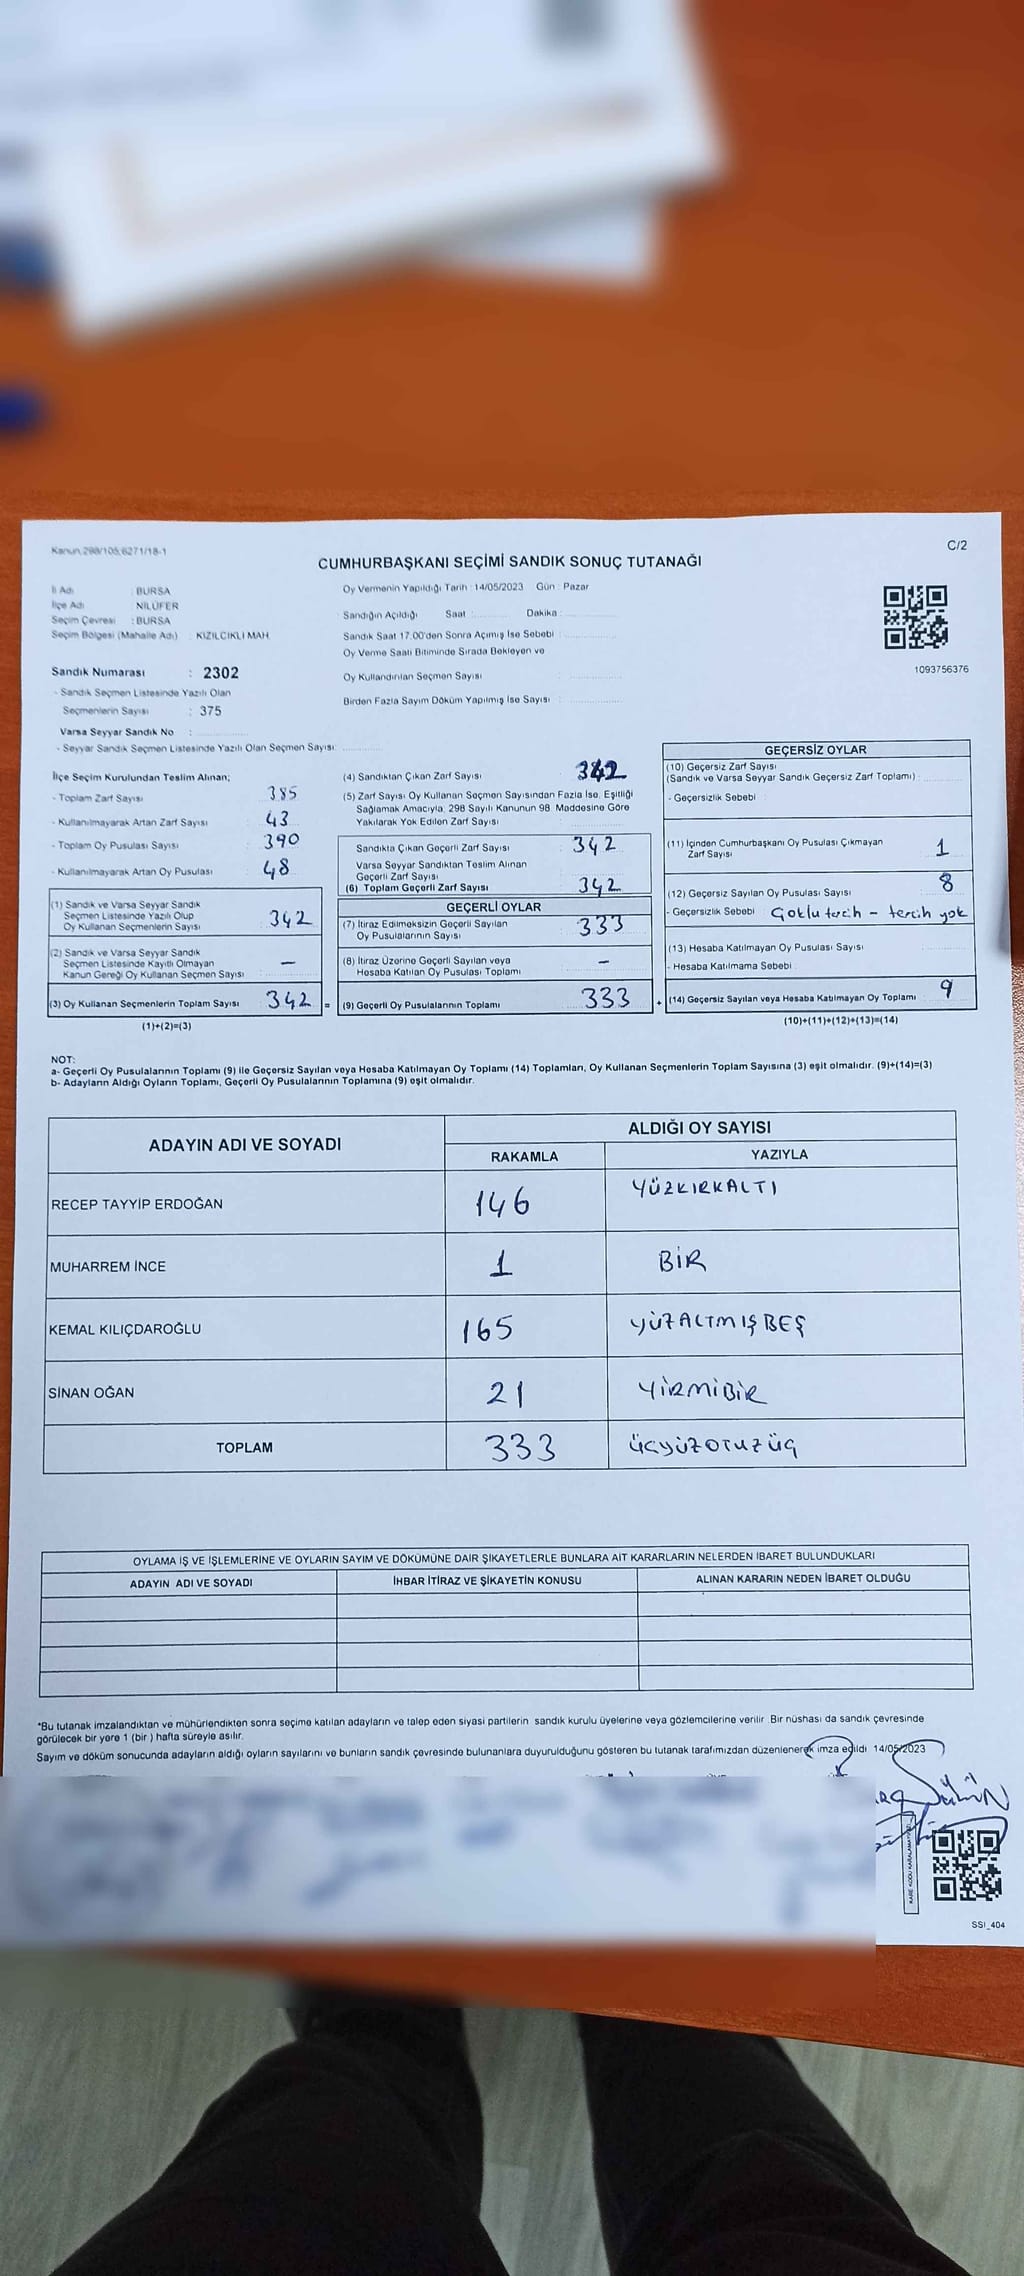 Kanun,298/105,6271/18-1
C/2
CUMHURBAŞKANI SEÇİMİ SANDIK SONUÇ TUTANAĞI
İl Adı : BURSA
İlçe Adı : NİLÜFER
Seçim Çevresi : BURSA
Seçim Bölgesi (Mahalle Adı) : KIZILCIKLI MAH.
Oy Vermenin Yapıldığı Tarih : 14/05/2023 Gün : Pazar
Sandığın Açıldığı Saat : Dakika :
Sandık Saat 17.00'den Sonra Açımış İse Sebebi :
Oy Verme Saati Bitiminde Sırada Bekleyen ve
Oy Kullandırılan Seçmen Sayısı :
Birden Fazla Sayım Döküm Yapılmış İse Sayısı :
1093756376
Sandık Numarası : 2302
- Sandık Seçmen Listesinde Yazılı Olan
Seçmenlerin Sayısı : 375
Varsa Seyyar Sandık No :
- Seyyar Sandık Seçmen Listesinde Yazılı Olan Seçmen Sayısı:
İlçe Seçim Kurulundan Teslim Alınan;
- Toplam Zarf Sayısı : 385
- Kullanılmayarak Artan Zarf Sayısı : 43
- Toplam Oy Pusulası Sayısı : 390
- Kullanılmayarak Artan Oy Pusulası : 48
(1) Sandık ve Varsa Seyyar Sandık
Seçmen Listesinde Yazılı Olup
Oy Kullanan Seçmenlerin Sayısı : 342
(2) Sandık ve Varsa Seyyar Sandık
Seçmen Listesinde Kayıtlı Olmayan
Kanun Gereği Oy Kullanan Seçmen Sayısı : –
(3) Oy Kullanan Seçmenlerin Toplam Sayısı : 342 =
(1)+(2)=(3)
(4) Sandıktan Çıkan Zarf Sayısı : 342
(5) Zarf Sayısı Oy Kullanan Seçmen Sayısından Fazla İse, Eşitliği
Sağlamak Amacıyla, 298 Sayılı Kanunun 98. Maddesine Göre
Yakılarak Yok Edilen Zarf Sayısı :
Sandıkta Çıkan Geçerli Zarf Sayısı : 342
Varsa Seyyar Sandıktan Teslim Alınan
Geçerli Zarf Sayısı :
(6) Toplam Geçerli Zarf Sayısı : 342
GEÇERLİ OYLAR
(7) İtiraz Edilmeksizin Geçerli Sayılan
Oy Pusulalarının Sayısı : 333
(8) İtiraz Üzerine Geçerli Sayılan veya
Hesaba Katılan Oy Pusulası Toplamı : –
(9) Geçerli Oy Pusulalarının Toplamı : 333 +
GEÇERSİZ OYLAR
(10) Geçersiz Zarf Sayısı
(Sandık ve Varsa Seyyar Sandık Geçersiz Zarf Toplamı) :
- Geçersizlik Sebebi :
(11) İçinden Cumhurbaşkanı Oy Pusulası Çıkmayan
Zarf Sayısı : 1
(12) Geçersiz Sayılan Oy Pusulası Sayısı : 8
- Geçersizlik Sebebi : Çoklu tercih – tercih yok
(13) Hesaba Katılmayan Oy Pusulası Sayısı :
- Hesaba Katılmama Sebebi :
(14) Geçersiz Sayılan veya Hesaba Katılmayan Oy Toplamı : 9
(10)+(11)+(12)+(13)=(14)
NOT:
a- Geçerli Oy Pusulalarının Toplamı (9) ile Geçersiz Sayılan veya Hesaba Katılmayan Oy Toplamı (14) Toplamları, Oy Kullanan Seçmenlerin Toplam Sayısına (3) eşit olmalıdır. (9)+(14)=(3)
b- Adayların Aldığı Oyların Toplamı, Geçerli Oy Pusulalarının Toplamına (9) eşit olmalıdır.
ADAYIN ADI VE SOYADI
ALDIĞI OY SAYISI
RAKAMLA YAZIYLA
RECEP TAYYİP ERDOĞAN 146 YÜZKIRKALTI
MUHARREM İNCE 1 BİR
KEMAL KILIÇDAROĞLU 165 YÜZALTMIŞBEŞ
SİNAN OĞAN 21 YİRMİBİR
TOPLAM 333 ÜÇYÜZOTUZÜÇ
OYLAMA İŞ VE İŞLEMLERİNE VE OYLARIN SAYIM VE DÖKÜMÜNE DAİR ŞİKAYETLERLE BUNLARA AİT KARARLARIN NELERDEN İBARET BULUNDUKLARI
ADAYIN ADI VE SOYADI İHBAR İTİRAZ VE ŞİKAYETİN KONUSU ALINAN KARARIN NEDEN İBARET OLDUĞU
*Bu tutanak imzalandıktan ve mühürlendikten sonra seçime katılan adayların ve talep eden siyasi partilerin sandık kurulu üyelerine veya gözlemcilerine verilir. Bir nüshası da sandık çevresinde
görülecek bir yere 1 (bir ) hafta süreyle asılır.
Sayım ve döküm sonucunda adayların aldığı oyların sayılarını ve bunların sandık çevresinde bulunanlara duyurulduğunu gösteren bu tutanak tarafımızdan düzenlenerek imza edildi 14/05/2023
SSI_404